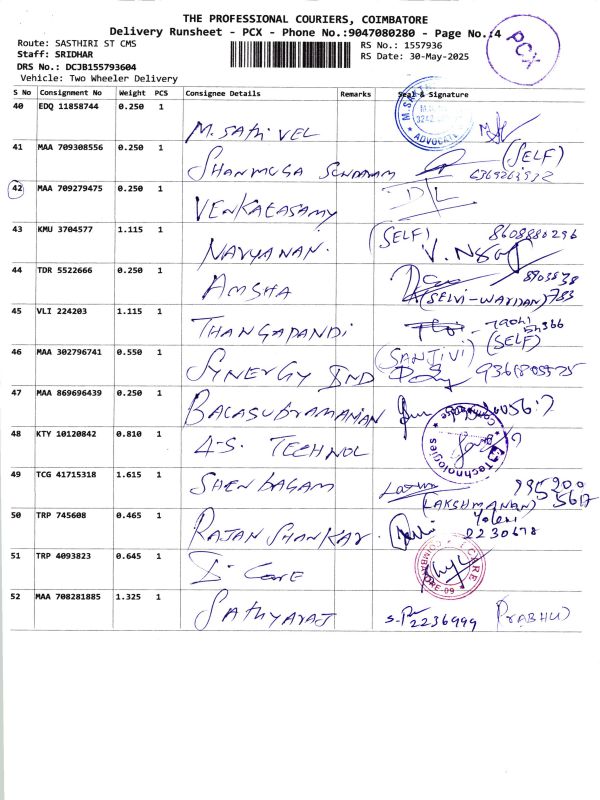 THE PROFESSIONAL COURIERS, COIMBATORE
Delivery Runsheet - PCX - Phone No.:9047080280 - Page No.:4
PCX
Route: SASTHIRI ST CMS
Staff: SRIDHAR
DRS No.: DCJB155793604
Vehicle: Two Wheeler Delivery
RS No.: 1557936
RS Date: 30-May-2025
S No Consignment No Weight PCS Consignee Details Remarks Seal & Signature
40 EDQ 11858744 0.250 1 M. SATHI VEL ADVOCATE
41 MAA 709308556 0.250 1 SHANMUGA SUNDARAM (SELF)
42 MAA 709279475 0.250 1 VENKATASAMY D/L
43 KMU 3704577 1.115 1 NARYANAN. (SELF) 8608880296
44 TDR 5522666 0.250 1 AMSHA 8903838
783
45 VLI 224203 1.115 1 THANGAPANDI (SELF)
46 MAA 302796741 0.550 1 SYNERGY IND (SANJIVI)
47 MAA 869696439 0.250 1 BALASUBRAMANIAN
48 KTY 10120842 0.810 1 A-S. TECHNOL Technologies
49 TCG 41715318 1.615 1 SHENBAGAM 995900
(LAKSHMANAN) 5617
50 TRP 745608 0.465 1 RAJAN SHANKAR. 2230678
51 TRP 4093823 0.645 1 D. CARE CARE COIMBATORE-09
52 MAA 708281885 1.325 1 SATHYARAJ 2236999 PRABHU